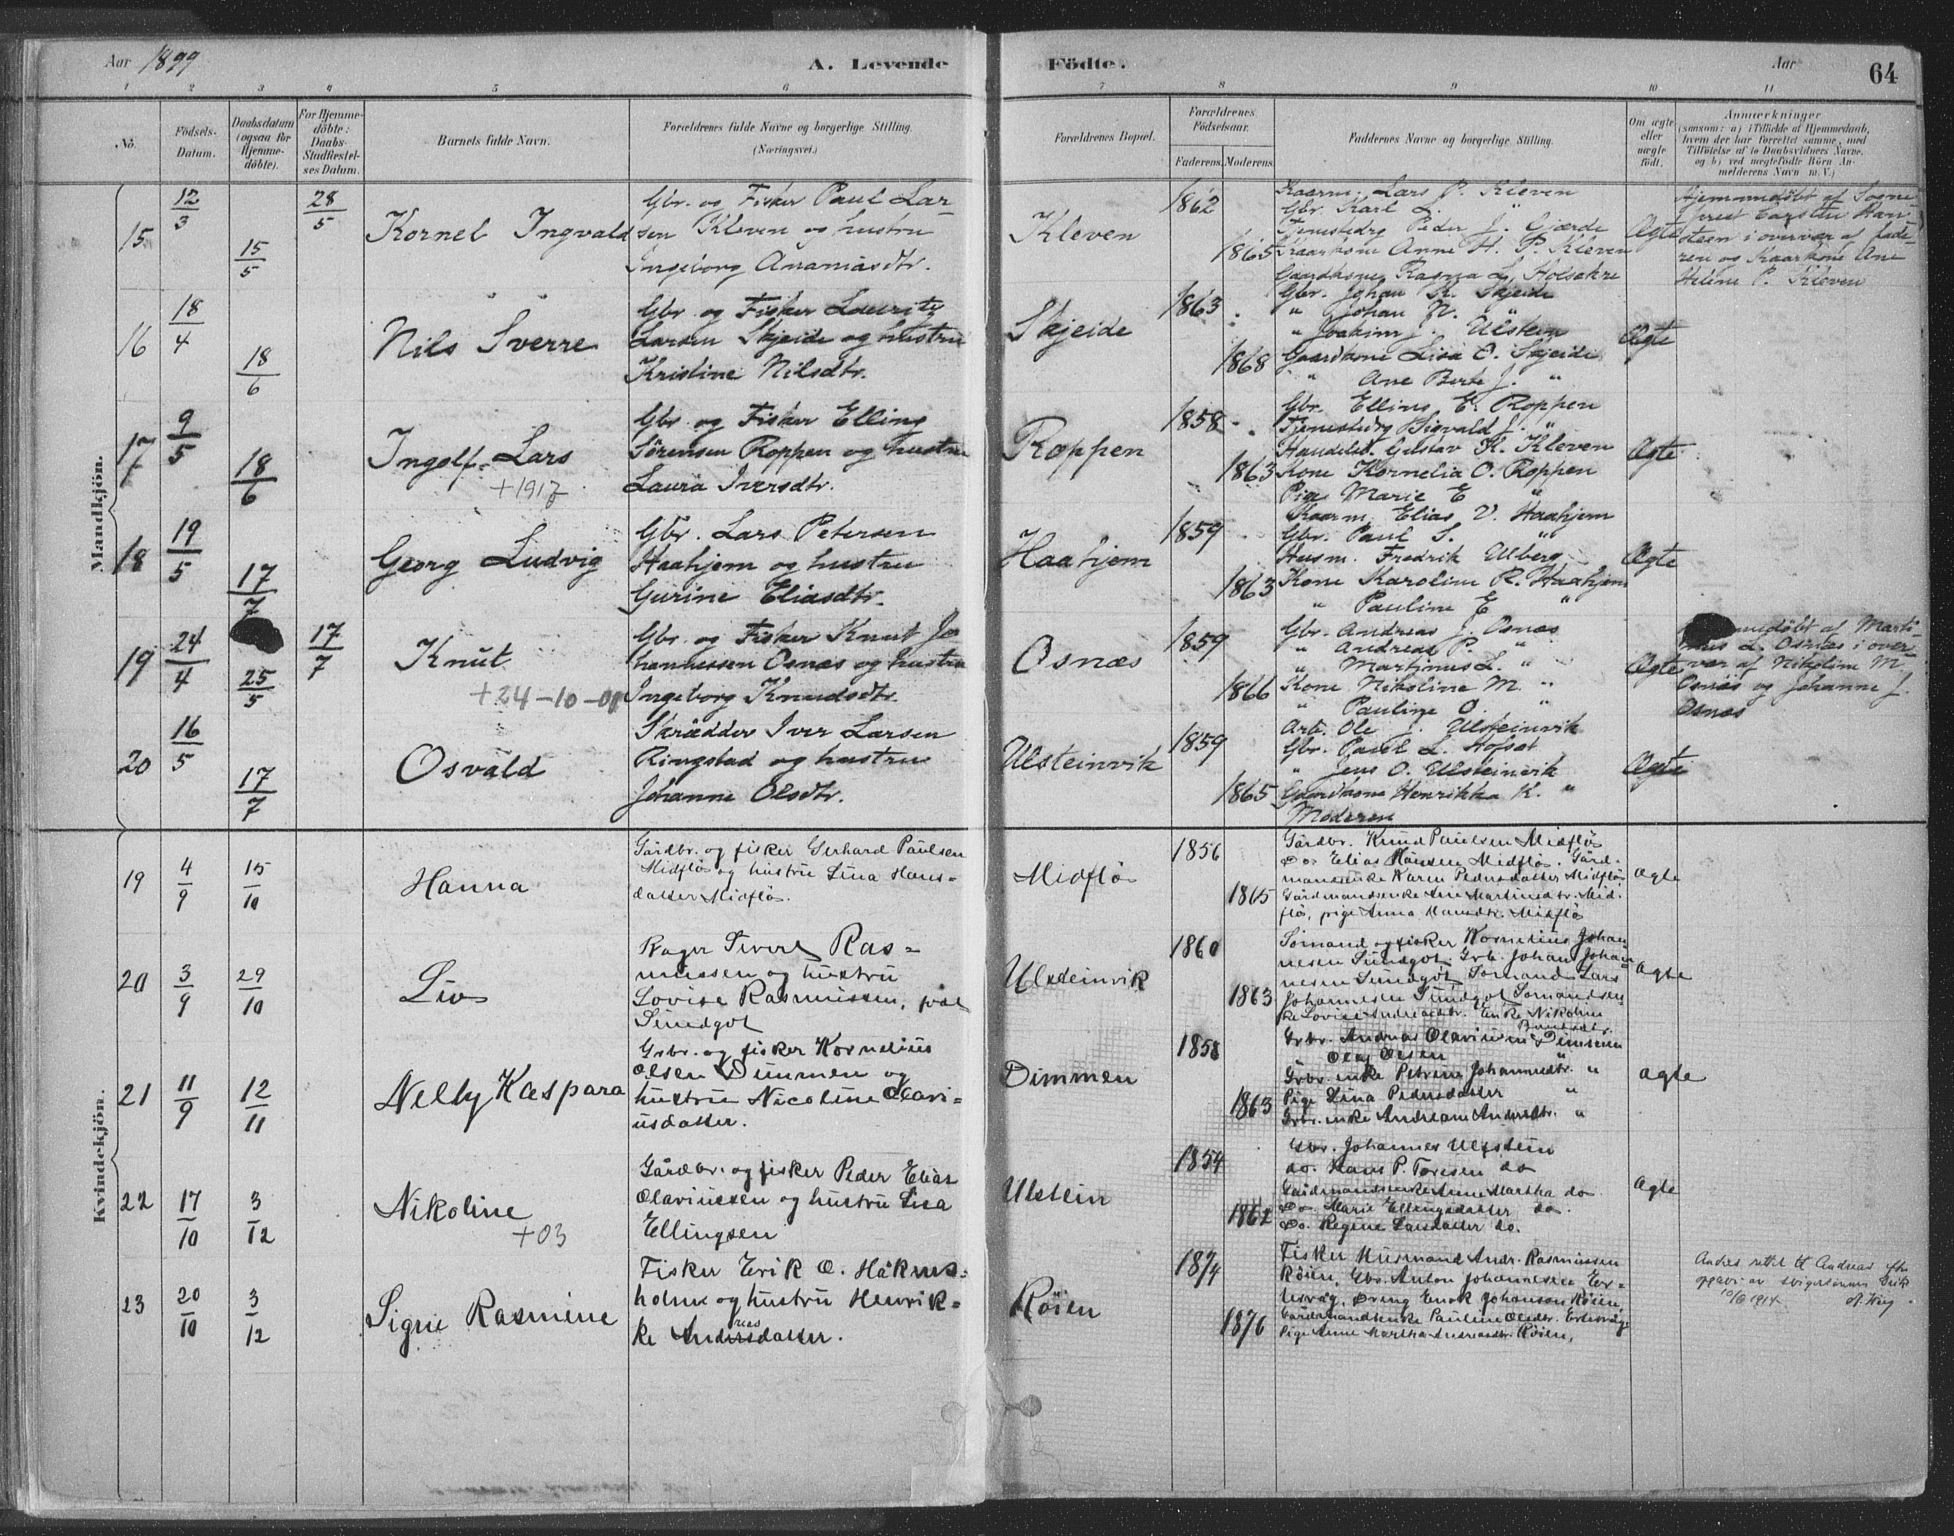 Aar 1899
A. Levende
Födte.
Aar
64
1 2 3 4 5 6 7 8 9 10 11
No.
Födsels-
Datum.
Daabsdatum
(ogsaa for
Hjemme-
döbte).
For Hjemme-
döbte:
Daabs-
Stadfæstel-
ses Datum.
Barnets fulde Navn.
Forældrenes fulde Navne og borgerlige Stilling.
(Næringsvei.)
Forældrenes Bopæl.
Forældrenes
Födselsaar.
Faderens. Moderens.
Faddernes Navne og borgerlige Stilling.
Om ægte
eller
uægte
födt.
Anmærkninger
(saasom: a) i Tilfælde af Hjemmedaab,
hvem der har forrettet samme, med
Tilföielse af to Daabsvidners Navne,
og b) ved uægtefödte Börn An-
melderens Navn m. V.)
Mandkjön.
15
12/3
15/5
28/5
Kornel Ingvald
Gbr. og Fisker Paul Lar-
sen Kleven og hustru
Ingeborg Ananiasdtr.
Kleven
1862
1865
Kaarm. Lars P. Kleven
Gbr. Karl L. "
Tjenestedrg Peder J. Gjærde
Kaarkone Anne H. P. Kleven
Gaardkone Rasma L. Holsekre
Ægte
Hjemmedöbt af Sogne-
prest Carsten Han-
steen i overvær af fade-
ren og Kaarkone Ane
Heline P. Kleven
16
18/4
18/6
Nils Sverre
Gbr. og Fisker Lauritz
Larsen Skjeide og hustru
Kristine Nilsdtr.
Skjeide
1863
1868
Gbr. Johan K. Skjeide
" Johan N. "
" Joakim J. Ulstein
Gaardkone Lisa O. Skjeide
" Ane Berte J. "
Ægte
17
9/5
18/6
Ingolf Lars
+1917
Gbr. og Fisker Elling
Sörensen Roppen og hustru
Laura Iversdtr.
Roppen
1858
1863
Gbr. Elling E. Roppen
Tjenestedrg Sigvald J. "
Handelsb. Gustav K. Kleven
Kone Kornelia O. Roppen
Pige Marie E "
Ægte
18
19/5
17/7
Georg Ludvig
Gbr. Lars Petersen
Haahjem og hustru
Gurine Eliasdtr.
Haahjem
1859
1863
Kaarm. Elias V. Haahjem
Gbr. Paul S. "
Husm. Fredrik Ulberg
Kone Karoline R. Haahjem
" Pauline E "
Ægte
19
24/4
25/5
17/7
Knut
+24-10-01
Gbr. og Fisker Knut Jo
hannessen Osnæs og hustru
Ingeborg Knudsdtr.
Osnæs
1859
1866
Gbr. Andreas J. Osnæs
" Andreas P. "
" Martinus L. "
Kone Nikoline M. "
" Pauline O. "
Ægte
medöbt af Marti-
nus L. Osnæs i over-
vær af Nikoline M
Osnæs og Johanne J.
Osnæs
20
16/5
17/7
Osvald
Skrædder Iver Larsen
Ringstad og hustru
Johanne Olsdtr.
Ulsteinvik
1859
1865
Arb. Ole J. Ulsteinvik
Gbr. Paul L. Hofset
" Jens O. Ulsteinvik
Gaardkone Henrikka K. "
Moderen
Ægte
Kvindekjön.
19
4/9
15/10
Hanna
Gårdbr. og fisker Gerhard Paulsen
Midflö og hustru Lina Hans-
datter Midflö.
Midflö
1856
1865
Gårdbr. Knud Paulsen Midflö
Do Elias Hansen Midflö. Gård-
mandsenke Karen Pedersdatter Midflö
Gårdmandsenke Ane Martinusdtr. Mid-
flö, pige Anna Hansdtr. Midflö
ægte
20
3/9
29/10
Liv
Bager Sivert Ras-
mussen og hustru
Lovise Rasmussen, född
Sundgot
Ulsteinvik
1860
1863
Sömand og fisker Kornelius Johan-
nesen Sundgot. Grb. Johan Johan-
nesen Sundgot, Sömand Lars
Johannesen Sundgot Sömandsen-
ke Lovise Andreasdtr. Enke Nikoline
ægte
21
11/9
12/11
Nelly Kaspara
Grbr. og fisker Kornelius
Olsen Dimmen og
hustru Nicoline Olavi-
usdatter.
Dimmen
1858
1863
Grbr. Andreas Olavisen Dimmen
Olaf Olsen "
Grbr. enke Petrine Johannesdtr. "
Pige Lina Pedersdatter "
Grbr. enke Andreane Andersdtr. "
ægte
22
17/10
3/12
Nikoline
+03
Gårdbr. og fisker Peder Elias
Olaviussen og hustru Lisa
Ellingsen
Ulstein
1854
1862
Gbr. Johannes Ulstein
do. Hans P. Toresen do
Gårdmandsenke Anne Martha do
Do. Marie Ellingsdatter do.
Do. Regine Larsdatter do.
ægte
23
20/10
3/12
Signe Rasmine
Fisker Erik O. Håkons-
holm og hustru Henrik-
ke Andersdatter.
reas
Röien
1874
1876
Fisker Husmand Andr. Rasmussen
Röien, Gbr. Anton Johannesen Er-
tesvåg, Dreng Enok Johansen Röien,
Gårdmandsenke Pauline Olsdtr. Ertesvåg
Pige Anne Martha Andreasdtr. Röien,
Andres rettet til Andreas efter
opgave av svigersönnen Erik
10/6 1914.